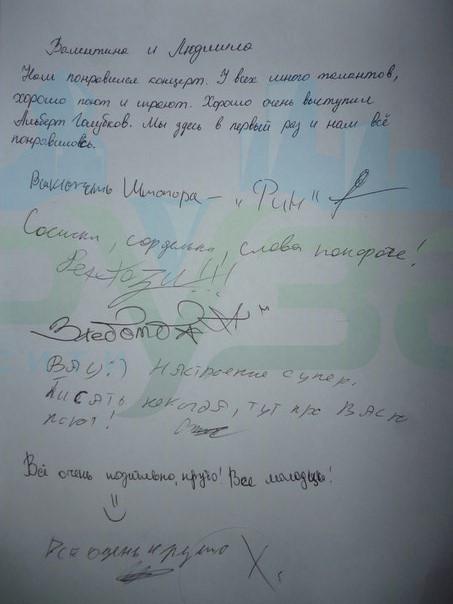 Валентина и Людмила
Нам понравился концерт. У всех много талантов,
хорошо поют и играют. Хорошо очень выступил
Альберт Голубков. Мы здесь в первый раз и нам всё
понравилось.
Выключить Штопора - "Рин"
Сосиски, сардельки, слова покороче!
ВАУ:) Настроение супер.
Писать некогда, тут про Васю
поют!
Всё очень позитивно, круто! Все молодцы!
Все очень круто